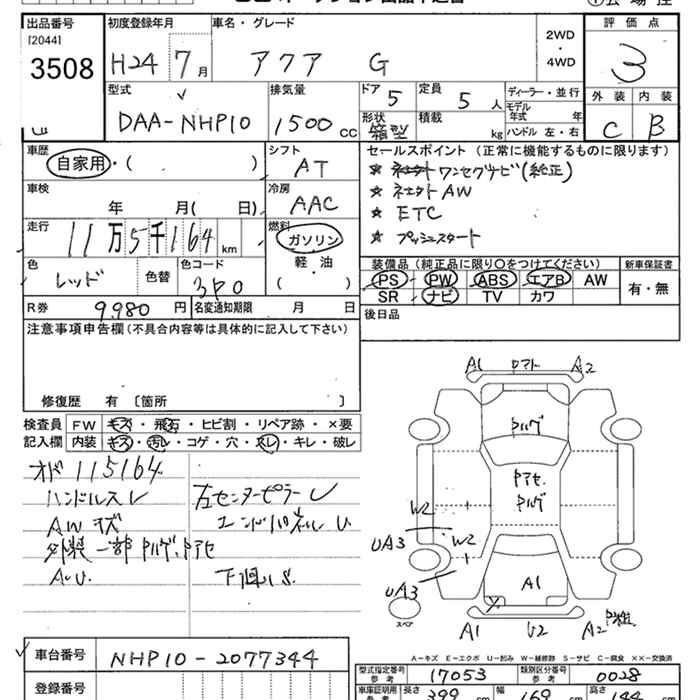 出品番号 初度登録年月 車名・グレード 評価点
[2044]
3508 H24 7月 アクア G 2WD・4WD 3
型式 排気量 ドア 5 定員 5人 ディーラー・並行 外装 内装
DAA-NHP10 1500cc 形状 箱型 積載 kg モデル年式 年 ハンドル 左・右 C B
車歴 シフト セールスポイント (正常に機能するものに限ります)
自家用・( ) AT ☆ ワンセグナビ(純正)
車検 冷房 ☆ AW
年 月( 日) AAC ☆ ETC
走行 燃料 ☆ プッシュスタート
11万5千164km ガソリン
色 色替 色コード 軽・油 装備品 (純正品に限り○をつけてください) 新車保証書
レッド 3P0 ( ) PS PW ABS エアB AW 有・無
R券 9,980円 名変通知期限 月 日 SR ナビ TV カワ
注意事項申告欄(不具合内容等は具体的に記入して下さい) 後日品
修復歴 有 〔箇所 〕
検査員 FW キズ・飛石・ヒビ割・リペア跡・×要
記入欄 内装 キズ・汚レ・コゲ・穴・スレ・キレ・破レ
オド 115164
ハンドルスレ 左センターピラーU
AWキズ エンドパネルU
外装一部
A.U. 下回りS
A1 A2
W2
UA3 W2
UA3 A1
スペア
A1 U2 A2
A-キズ E-エクボ U-凹み W-補修跡 S-サビ C-腐食 ××-交換済
車台番号 NHP10-2077344
型式指定番号 参考 17053 類別区分番号 参考 0028
登録番号 車庫証明用 参考 長さ 399 cm 幅 169 cm 高さ 144 cm